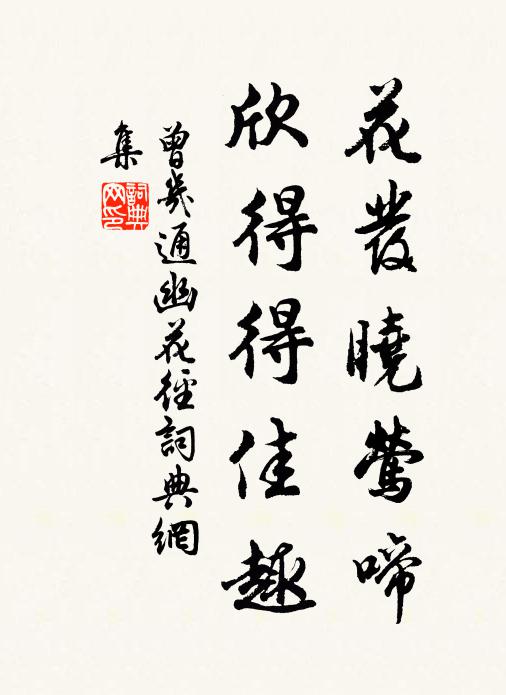 花發曉鶯啼
欣得得佳趣
曾幾通幽花徑詞典網
集
詞典
网印